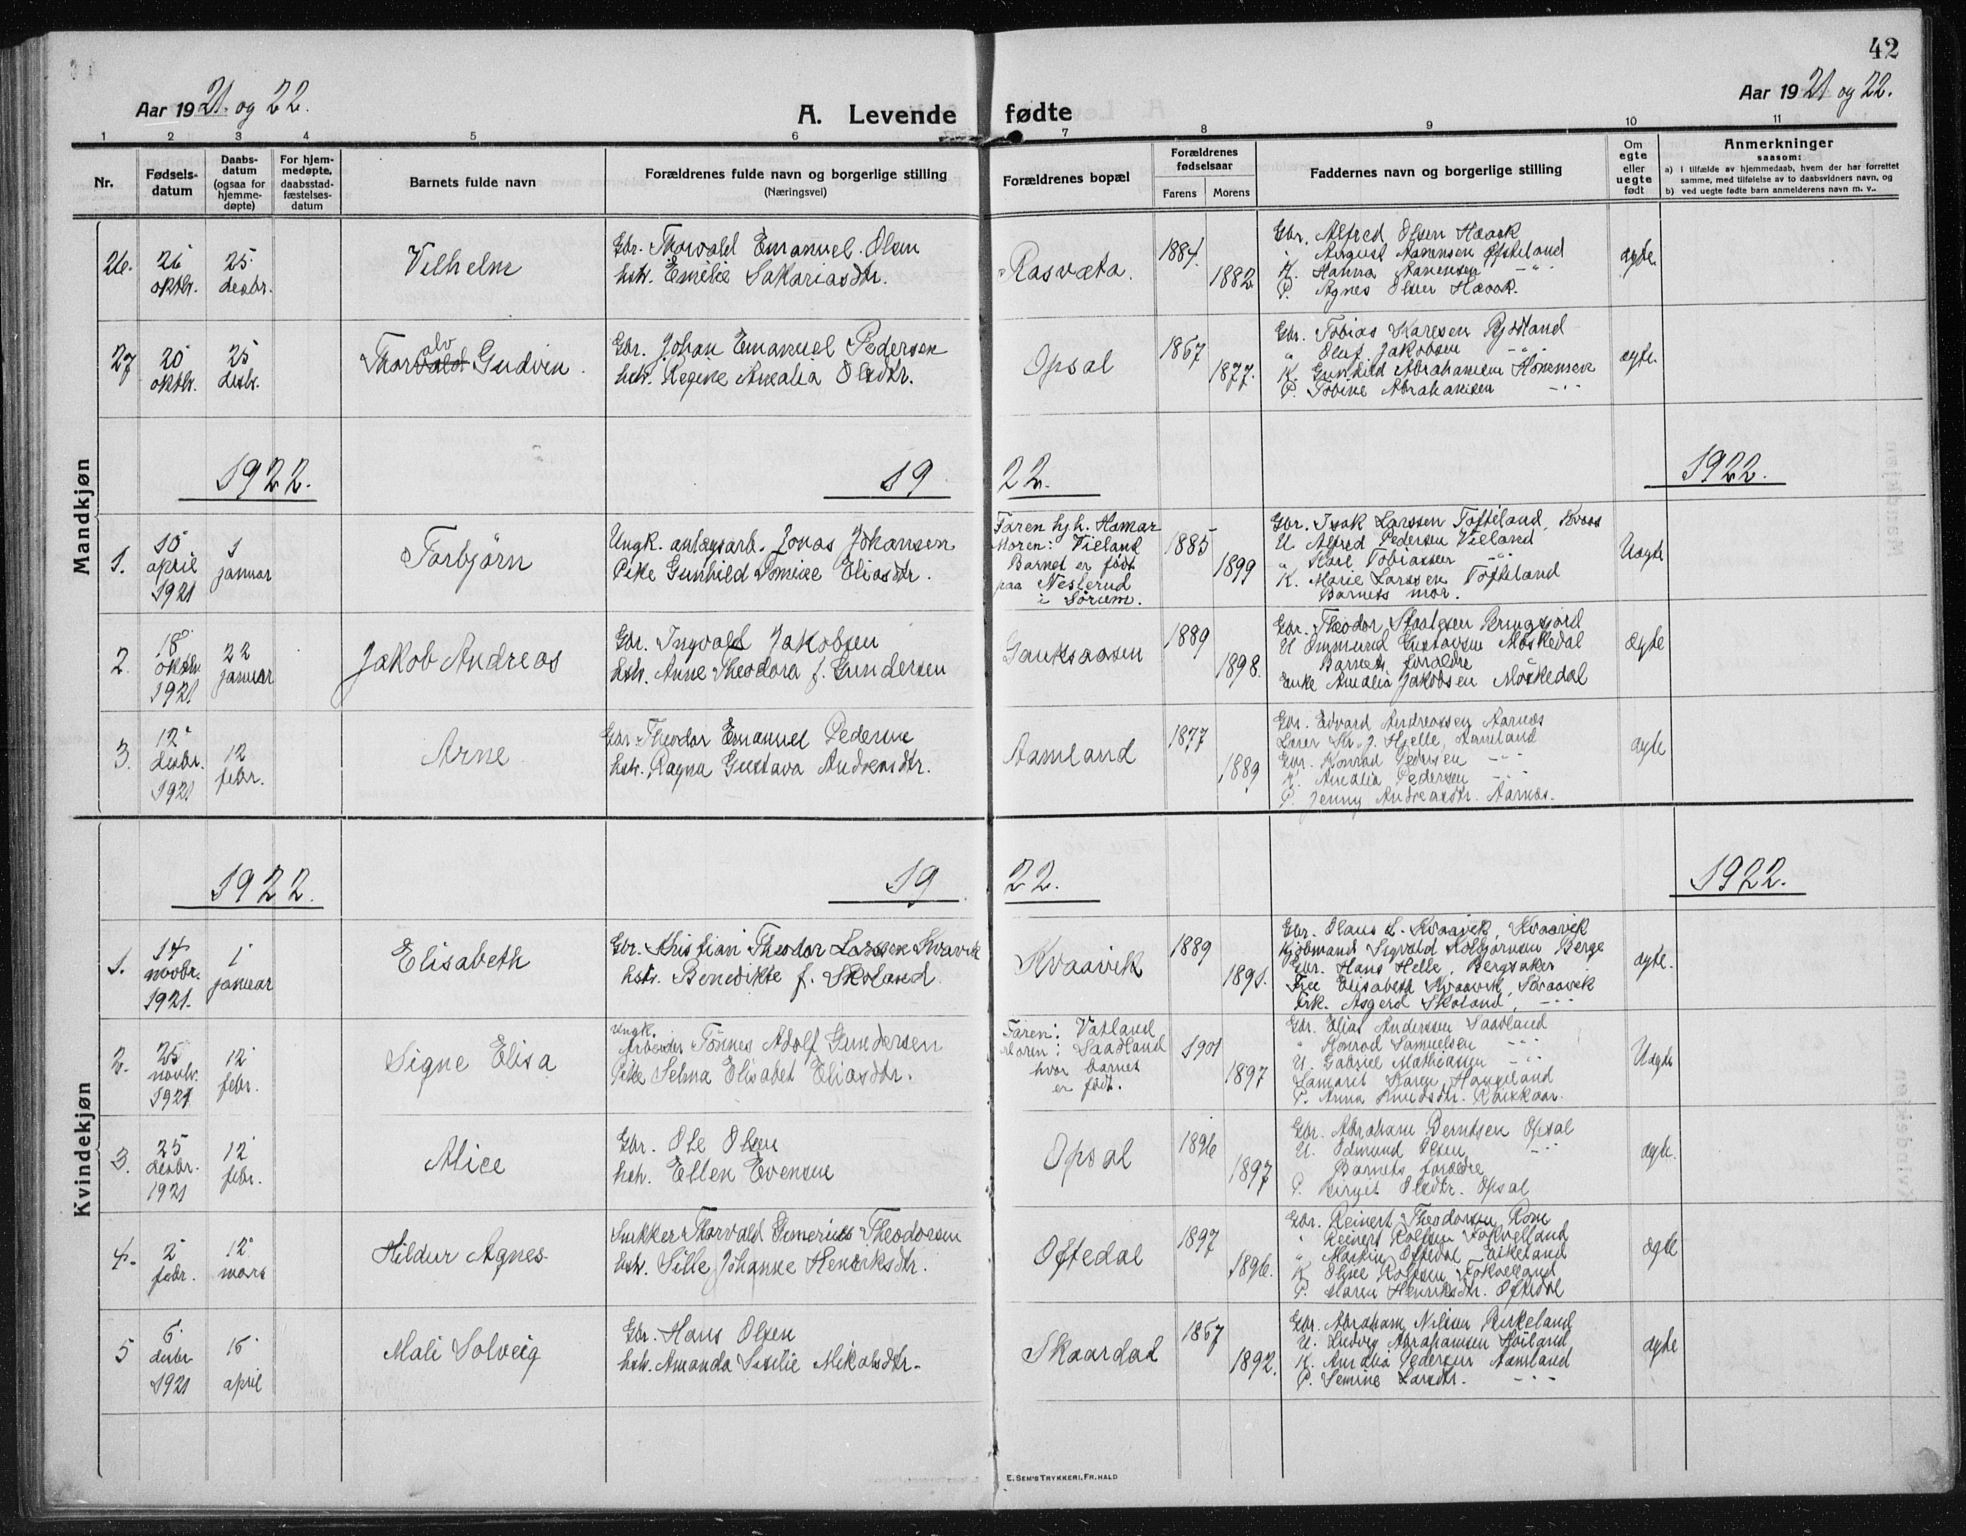 42
Aar 1921 og 22.
A. Levende fødte
Aar 1921 og 22.
1 2 3 4 5 6 7 8 9 10 11
Nr.
Fødsels-
datum
Daabs-
datum
(ogsaa for
hjemme-
døpte)
For hjem-
medøpte,
daabsstad-
fæstelses-
datum
Barnets fulde navn
Forældrenes fulde navn og borgerlige stilling
(Næringsvei)
Forældrenes bopæl
Forældrenes
fødselsaar
Farens Morens
Faddernes navn og borgerlige stilling
Om
egte
eller
uegte
født
Anmerkninger
saasom:
a) i tilfælde av hjemmedaab, hvem der har forrettet
samme, med tilføielse av to daabsvidners navn, og
b) ved uegte fødte barn anmelderens navn m. v..
Mandkjøn
26.
26
oktbr.
25
desbr.
Vilhelm
Gbr. Thorvald Emanuel Olsen
hstr. Emilie Sakariasdtr.
Rasvæta.
1884.
1882
Gbr. Alfred Olsen Haaok
" August Aanensen Øfsteland
K. Hanna Aanensen - " -
P. Agnes Olsen Haaok.
ægte.
27
20
oktbr.
25
desbr.
Thorvald alv Gudvin
Gbr. Johan Emanuel Pedersen
hstr. Regine Amalia Olsdtr.
Opsal
1867
1877.
Gbr. Tobias Karlsen Bjødland
" Oluf Jakobsen - " -
K. Gunhild Abrahamsen
P. Tobine Abrahamsen - " -
ægte.
1922.
19
22.
1922.
1.
10
april
1921
1
januar
Torbjørn
Ungk. anlægsarb. Jonas Johansen
Pike Gunhild Eliasdtr.
Faren hjh. Hamar
Moren: Vieland
Barnet er født
paa Nesterud
i Sørum.
1885
1899
Gbr. Isak Larssen Tofteland, Kvaas
U. Alfred Pedersen Vieland
" Karl Tobiassen - " -
K. Marie Larssen Tofteland
Barnets mor.
Uægte
2.
18
oktbr.
1921
22
januar
Jakob Andreas
Gbr. Ingvald Jakobsen
hstr. Anne Theodora f. Gundersen
Gauksaasen
1889
1898.
Gbr. Theodor Bringsjord
U Ommund Gustavsen Møskedal
Barnets forældre
Enke Amalia Jakobsen Møskedal
Ægte
3.
12
desbr.
1921
12
febr.
Arne
Gbr Theodor Emanuel Pedersen
hstr. Ragna Gustava Andreasdtr.
Aamland
1877
1889
Gbr. Edvard Andreassen Aarnæs
Lærer Kr. J. Hjelle, Aamland
Gbr. Konrad Pedersen - " -
K. Amalia Pedersen - " -
P. Jenny Andreasdtr. Aarnæs.
ægte
Kvindekjøn
1922.
19
22.
1922.
1.
14
novbr.
1921.
1
januar
Elisabeth
Gbr. Kristian Theodor Larssen Kvavik
hstr. Benedikte f. Skoland.
Kvaavik
1889
1891.
Gbr. Olaus L. Kvaavik, Kvaavik
Kjøbmand Sigvald Kolbjørnsen Berge
Gbr. Hans Helle, Bergsaker
Frk. Elisabeth Kvaavik, Kvaavik
Frk. Asgerd Skoland, - " -
ægte.
2.
25
novbr.
1921
12
febr.
Signe Elisa
Ungk.
Arbeider Tønnes Adolf Gundersen
Pike Selma Elisabet Eliasdtr.
Faren: Vatland
Moren: Saadland
hvor barnet
er født.
1901
1897
Gbr. Elias Anderssen Saadland
" Konrad Samuelsen - " -
U. Gabriel Mathiassen - " -
Karen Haugeland
P. Anna Knudsdtr.
Uægte
3.
25
desbr.
1921
12
febr.
Alice
Gbr. Ole Olsen
hstr. Ellen Evensen
Opsal
1896
1897
Gbr. Abraham Berntsen Opsal
U. Odmund Olsen - " -
Barnets forældre
P. Birgit Olsdtr. Opsal
ægte.
4.
2
febr.
12
mars
Hildur Agnes
Snikker Thorvald Theodorsen
hstr. Sille Johanne Henriksdtr.
Oftedal
1897
1896.
Gbr. Reinert Theodorsen Rom
" Reinert Rolfsen
" Martin Oftedal Eikeland
K Olene Rolfsen
P. Maren Henriksdtr. Oftedal
ægte
5
6
desbr
1921
16
april
Mali Solveig
Gbr. Hans Olsen
hstr. Amanda Sesilie Mikalsdtr.
Skaardal
1867
1892.
Gbr. Abraham Nilsen Birkeland
U. Ludvig Abrahamsen Høiland
K. Amalia Pedersen Aamland
P. Semine Larsdtr. - " -
ægte
E. SEM'S TRYKKERI, FR.HALD